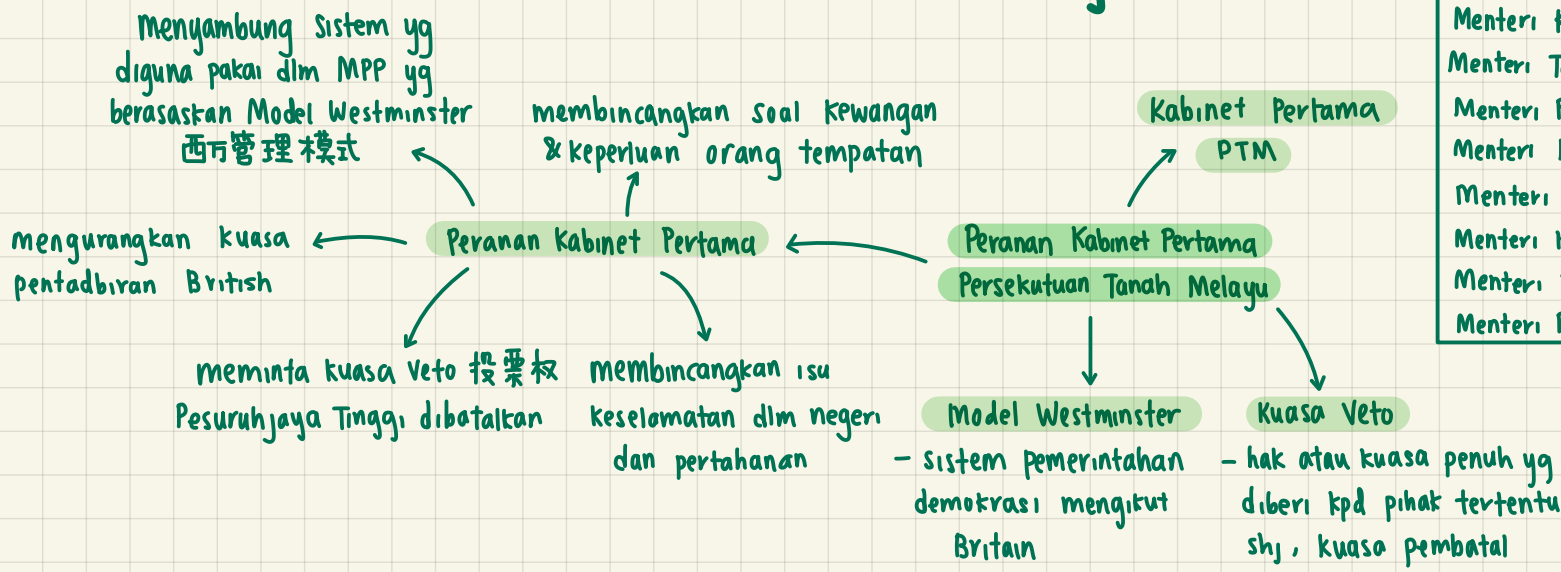 menyambung sistem yg
diguna pakai dlm MPP yg
berasaskan Model Westminster
西方管理模式
membincangkan soal kewangan
& keperluan orang tempatan
mengurangkan kuasa
pentadbiran British
Peranan Kabinet Pertama
meminta kuasa veto 投票权
Pesuruhjaya Tinggi dibatalkan
membincangkan isu
keselamatan dlm negeri
dan pertahanan
Kabinet Pertama
PTM
Peranan Kabinet Pertama
Persekutuan Tanah Melayu
Model Westminster
- sistem pemerintahan
demokrasi mengikut
Britain
Kuasa Veto
- hak atau kuasa penuh yg
diberi kpd pihak tertentu
shj, kuasa pembatal
Menteri
Menteri
Menteri
Menteri
Menteri
Menteri
Menteri
Menteri